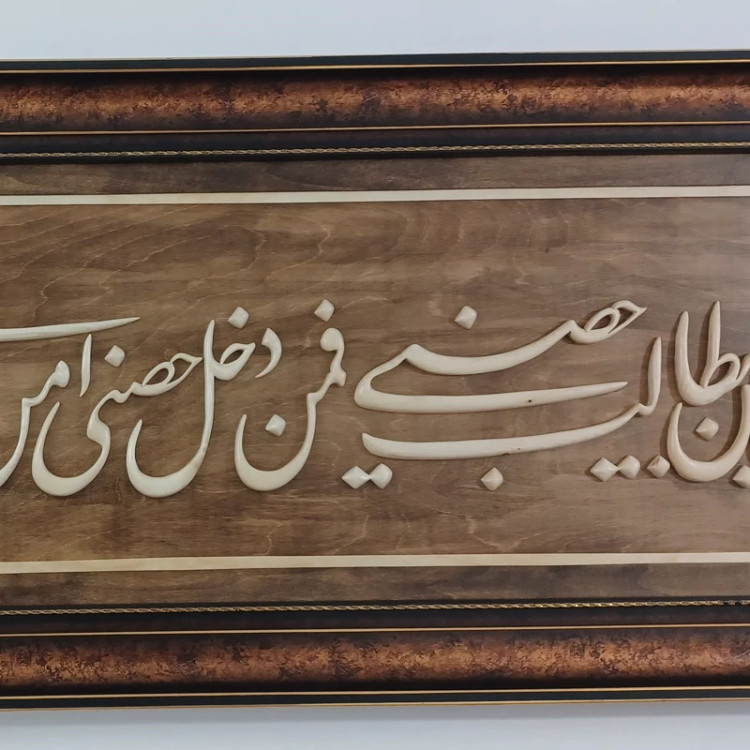 بن ابیطالب حصنی فمن دخل حصنی امن